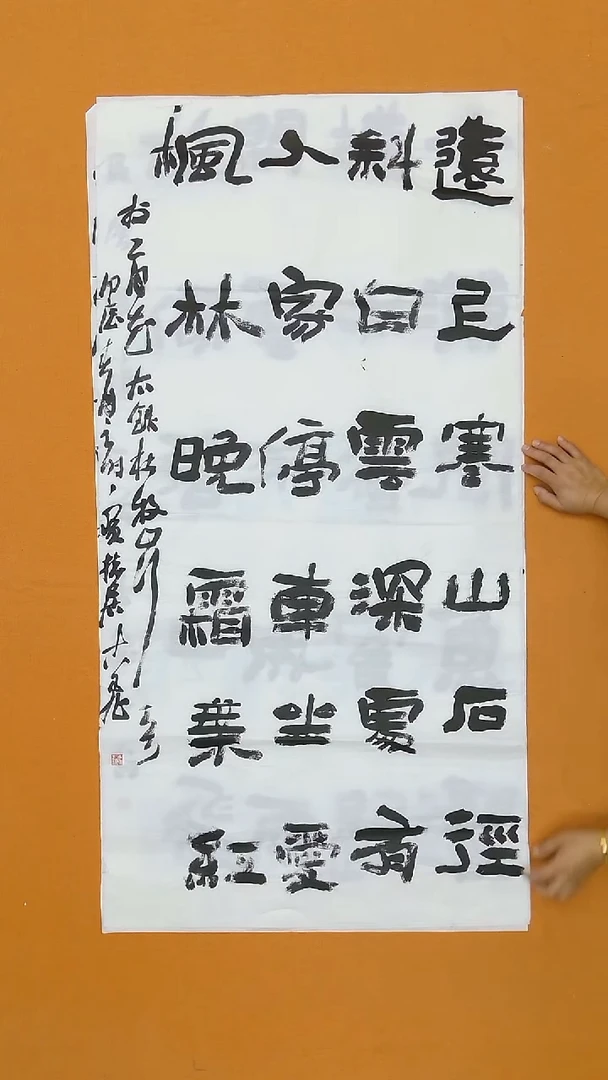 遠上寒山石徑
斜白雲深處有
人家停車坐愛
楓林晚霜葉紅
於二月花右錄杜牧山行